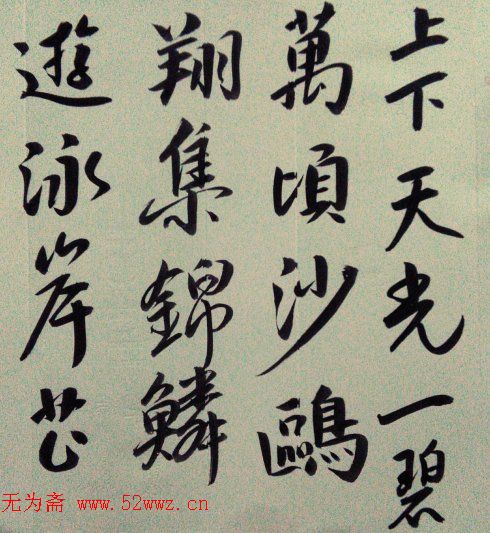 上下天光一碧
萬頃沙鷗
翔集錦鱗
遊泳岸芷
无为斋 www.52wwz.cn